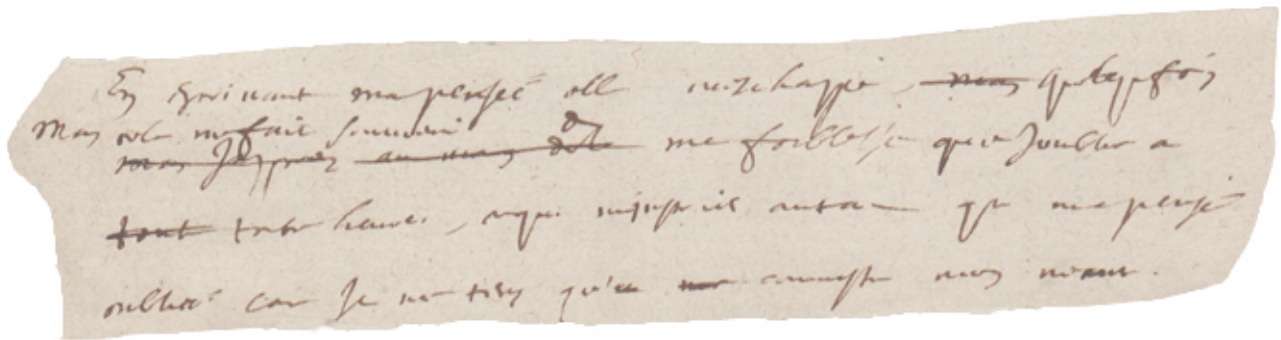 En escrivant ma pensée elle m'eschappe quelquefois
Mais cela me fait souvenir de
ma foiblesse que j'oublie a
tout toute heure, ce qui m'instruit autant que ma pensée
oubliée car je ne tiens qu'a connoistre mon neant.